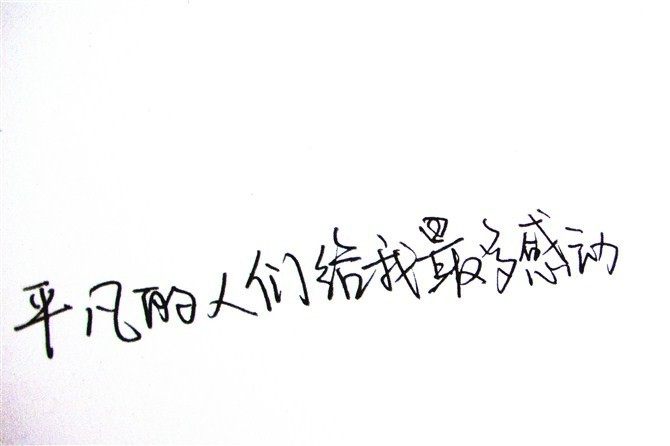 平凡的人们给我最多感动